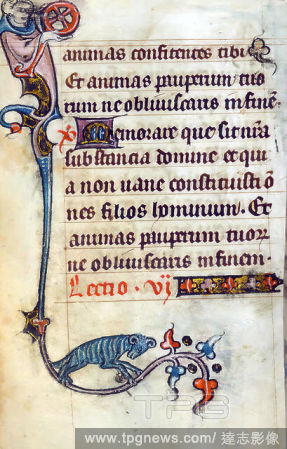 animas confitentes tibi
Et animas pauperum tuo
rum ne obliuiscaris in fine.
Memorare que sit nra
substancia domine et qui
a non uane constituisti o
nes filios hominum. Et
animas pauperum tuor
ne obliuiscaris in finem.
Lectio. vi
TPG
www.tpgnews.com/ 達志影像